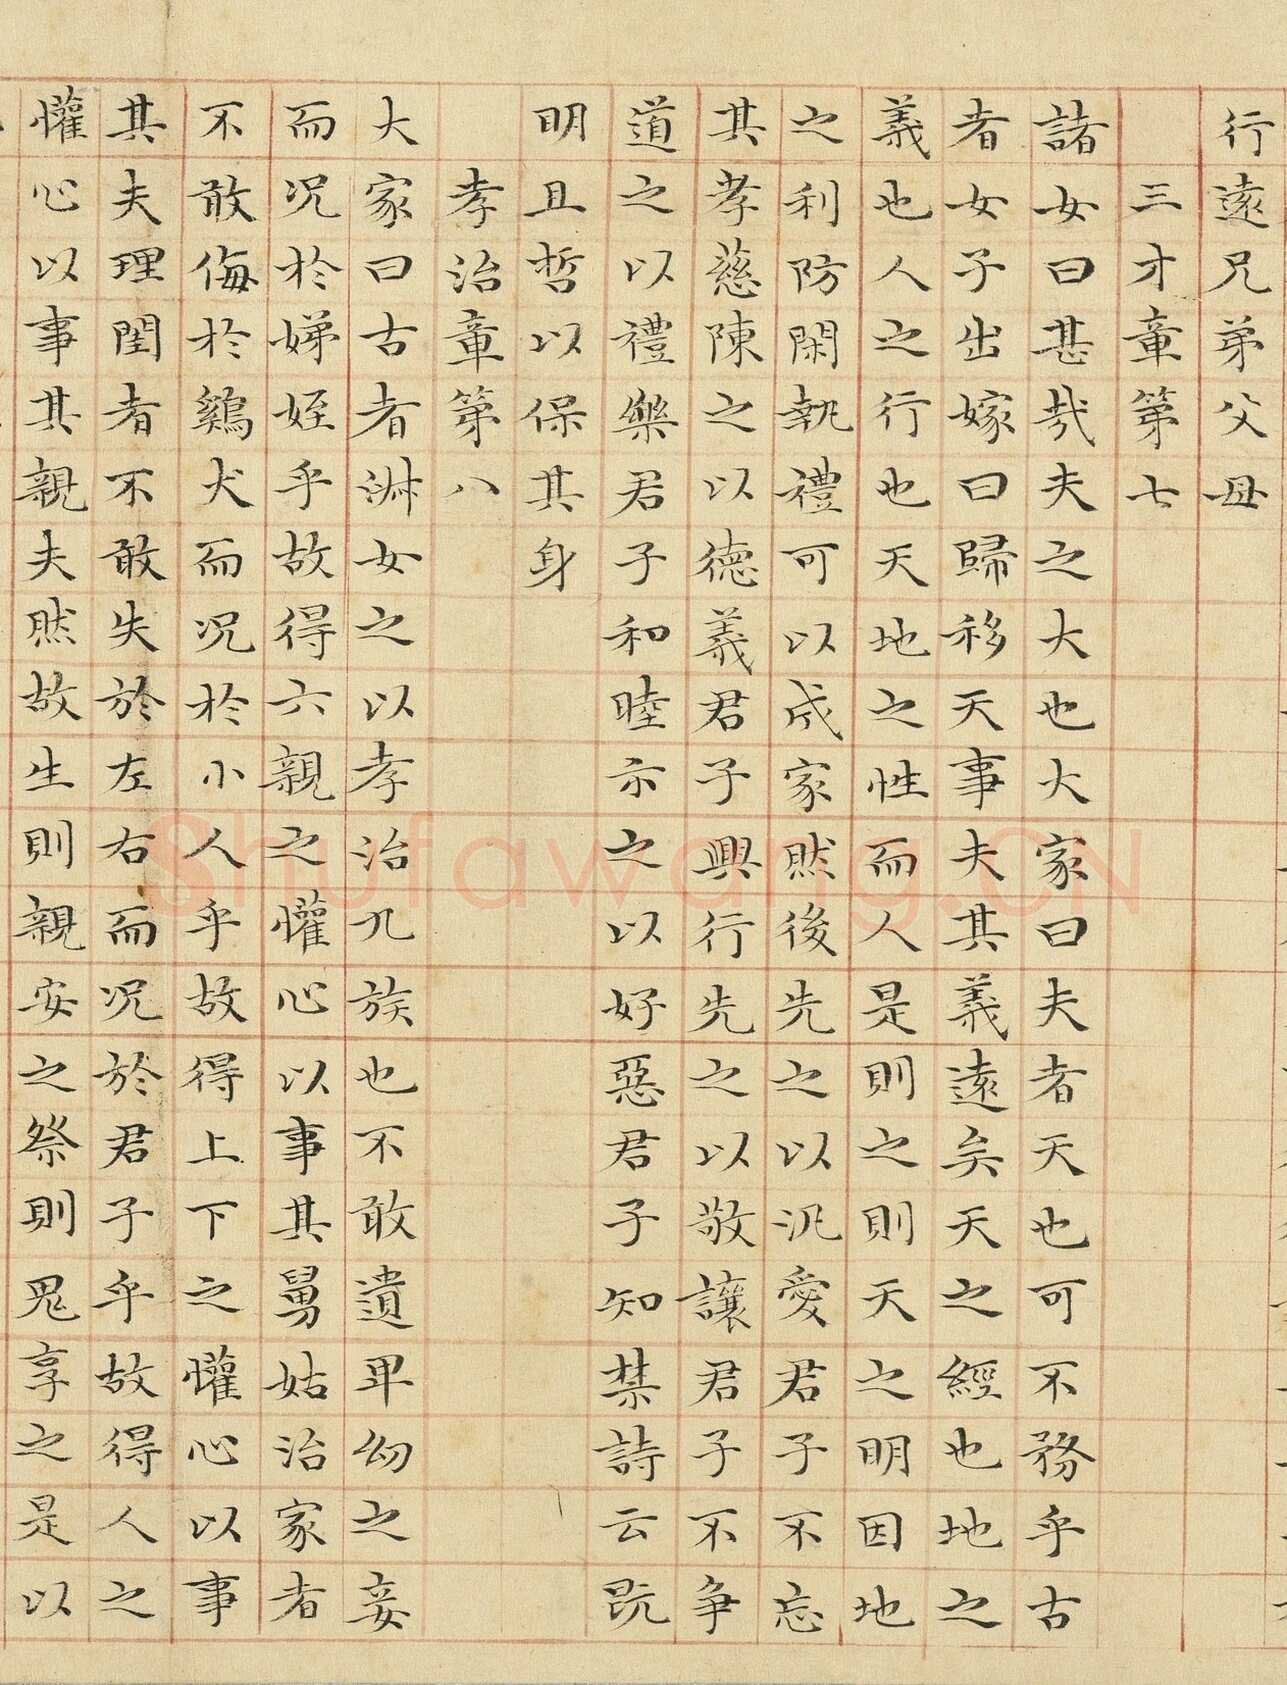 行遠兄弟父母
三才章第七
諸女曰甚㢤夫之大也大家曰夫者天也可不務乎古
者女子出嫁曰歸移天事夫其義遠矣天之經也地之
義也人之行也天地之性而人是則之則天之明因地
之利防閑執禮可以成家然後先之以汎愛君子不忘
其孝慈陳之以德義君子興行先之以敬讓君子不争
道之以禮樂君子和睦示之以好惡君子知禁詩云既
明且哲以保其身
孝治章第八
大家曰古者淋女之以孝治九族也不敢遺卑幼之妾
而况於娣姪乎故得六親之懽心以事其舅姑治家者
不敢侮於鷄犬而况於小人乎故得上下之懽心以事
其夫理閨者不敢失於左右而况於君子乎故得人之
懽心以事其親夫然故生則親安之祭則鬼享之是以
Shufawang.CN